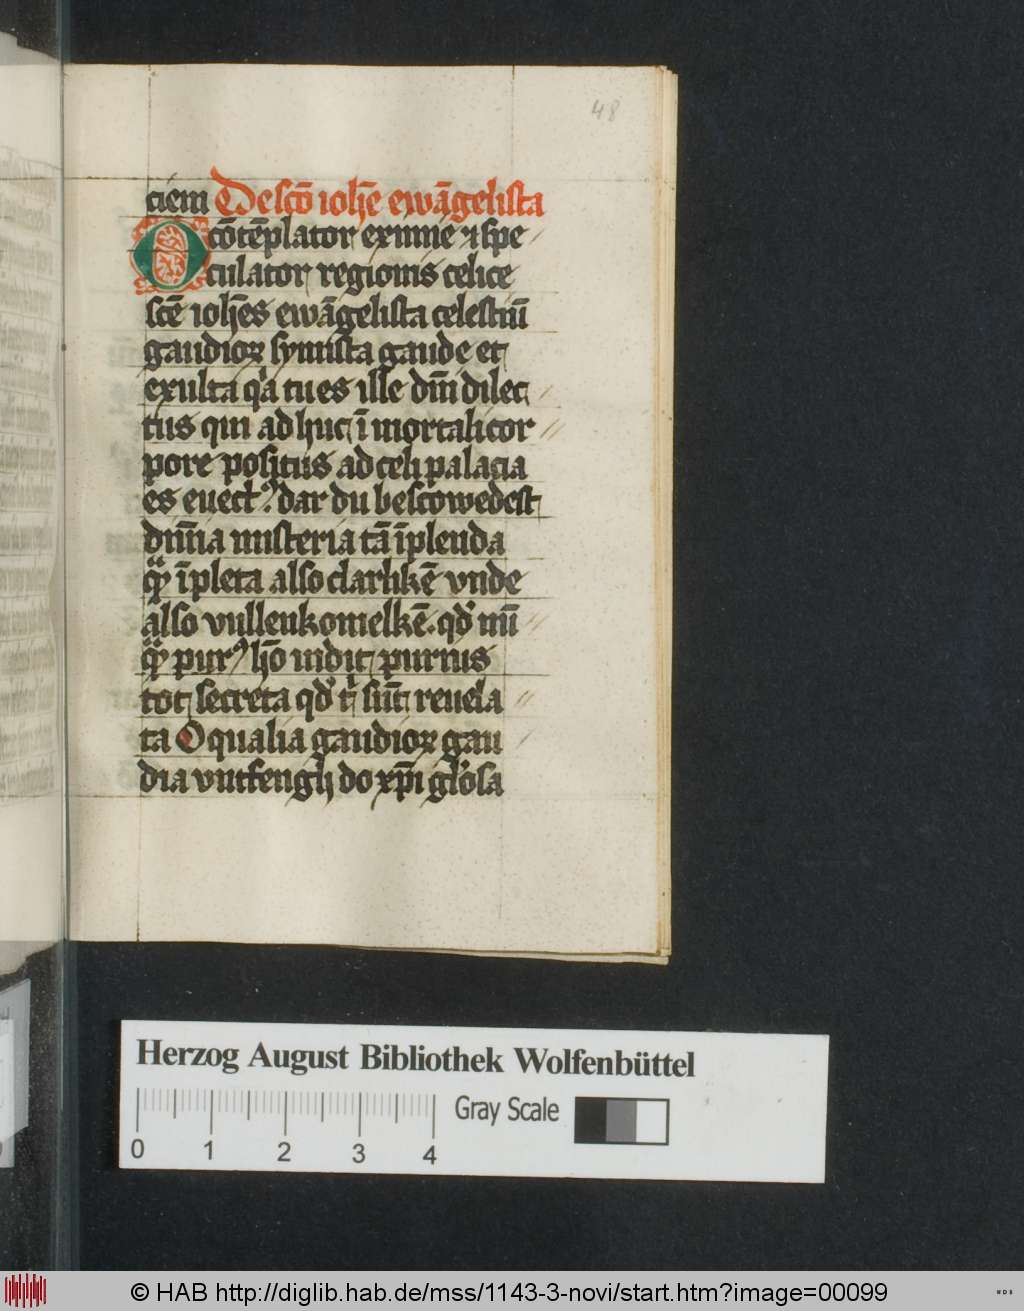 48
ciem De scō ioh̄e ewāgelista
O cōtēplator eximie ⁊ spe
culator regionis celice
scē ioh̄es ewāgelista celestiū
gaudioꝝ symista gaude et
exulta qͣa tu es ille dn̄i dilec
tus qui ad huc ī mortali cor
pore positus ad celi palacia
es euectꝰ dar du bescowedest
diuīa misteria tā īplenda
qͣꝫ īpleta also clarlikē vnde
also vullenkomelkē. qd̓ nūͣ
qͣꝫ purꝰ hō uidit purius
tot secreta qd̓ t̄ sūt reuela
ta O qualia gaudioꝝ gau
dia vntfengh do xp̄i gl̓osa
Herzog August Bibliothek Wolfenbüttel
0 1 2 3 4
Gray Scale
© HAB http://diglib.hab.de/mss/1143-3-novi/start.htm?image=00099